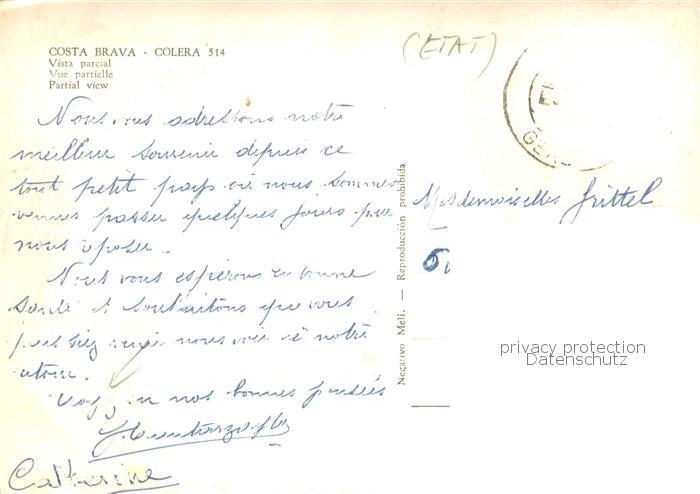 COSTA BRAVA - COLERA 514
Vista parcial
Vue partielle
Partial view
(ETAT)
Nous vous adressons notre
meilleur souvenir depuis ce
tout petit pays où nous sommes
venues passer quelques jours pour
nous reposer.
Nous vous espérons en bonne
santé et souhaitons que vous
puissiez venir nous voir à notre
retour.
nos bonnes pensées
Catherine
Negativo Meli. — Reproducción prohibida
Mesdemoiselles Grittel
GE
privacy protection
Datenschutz